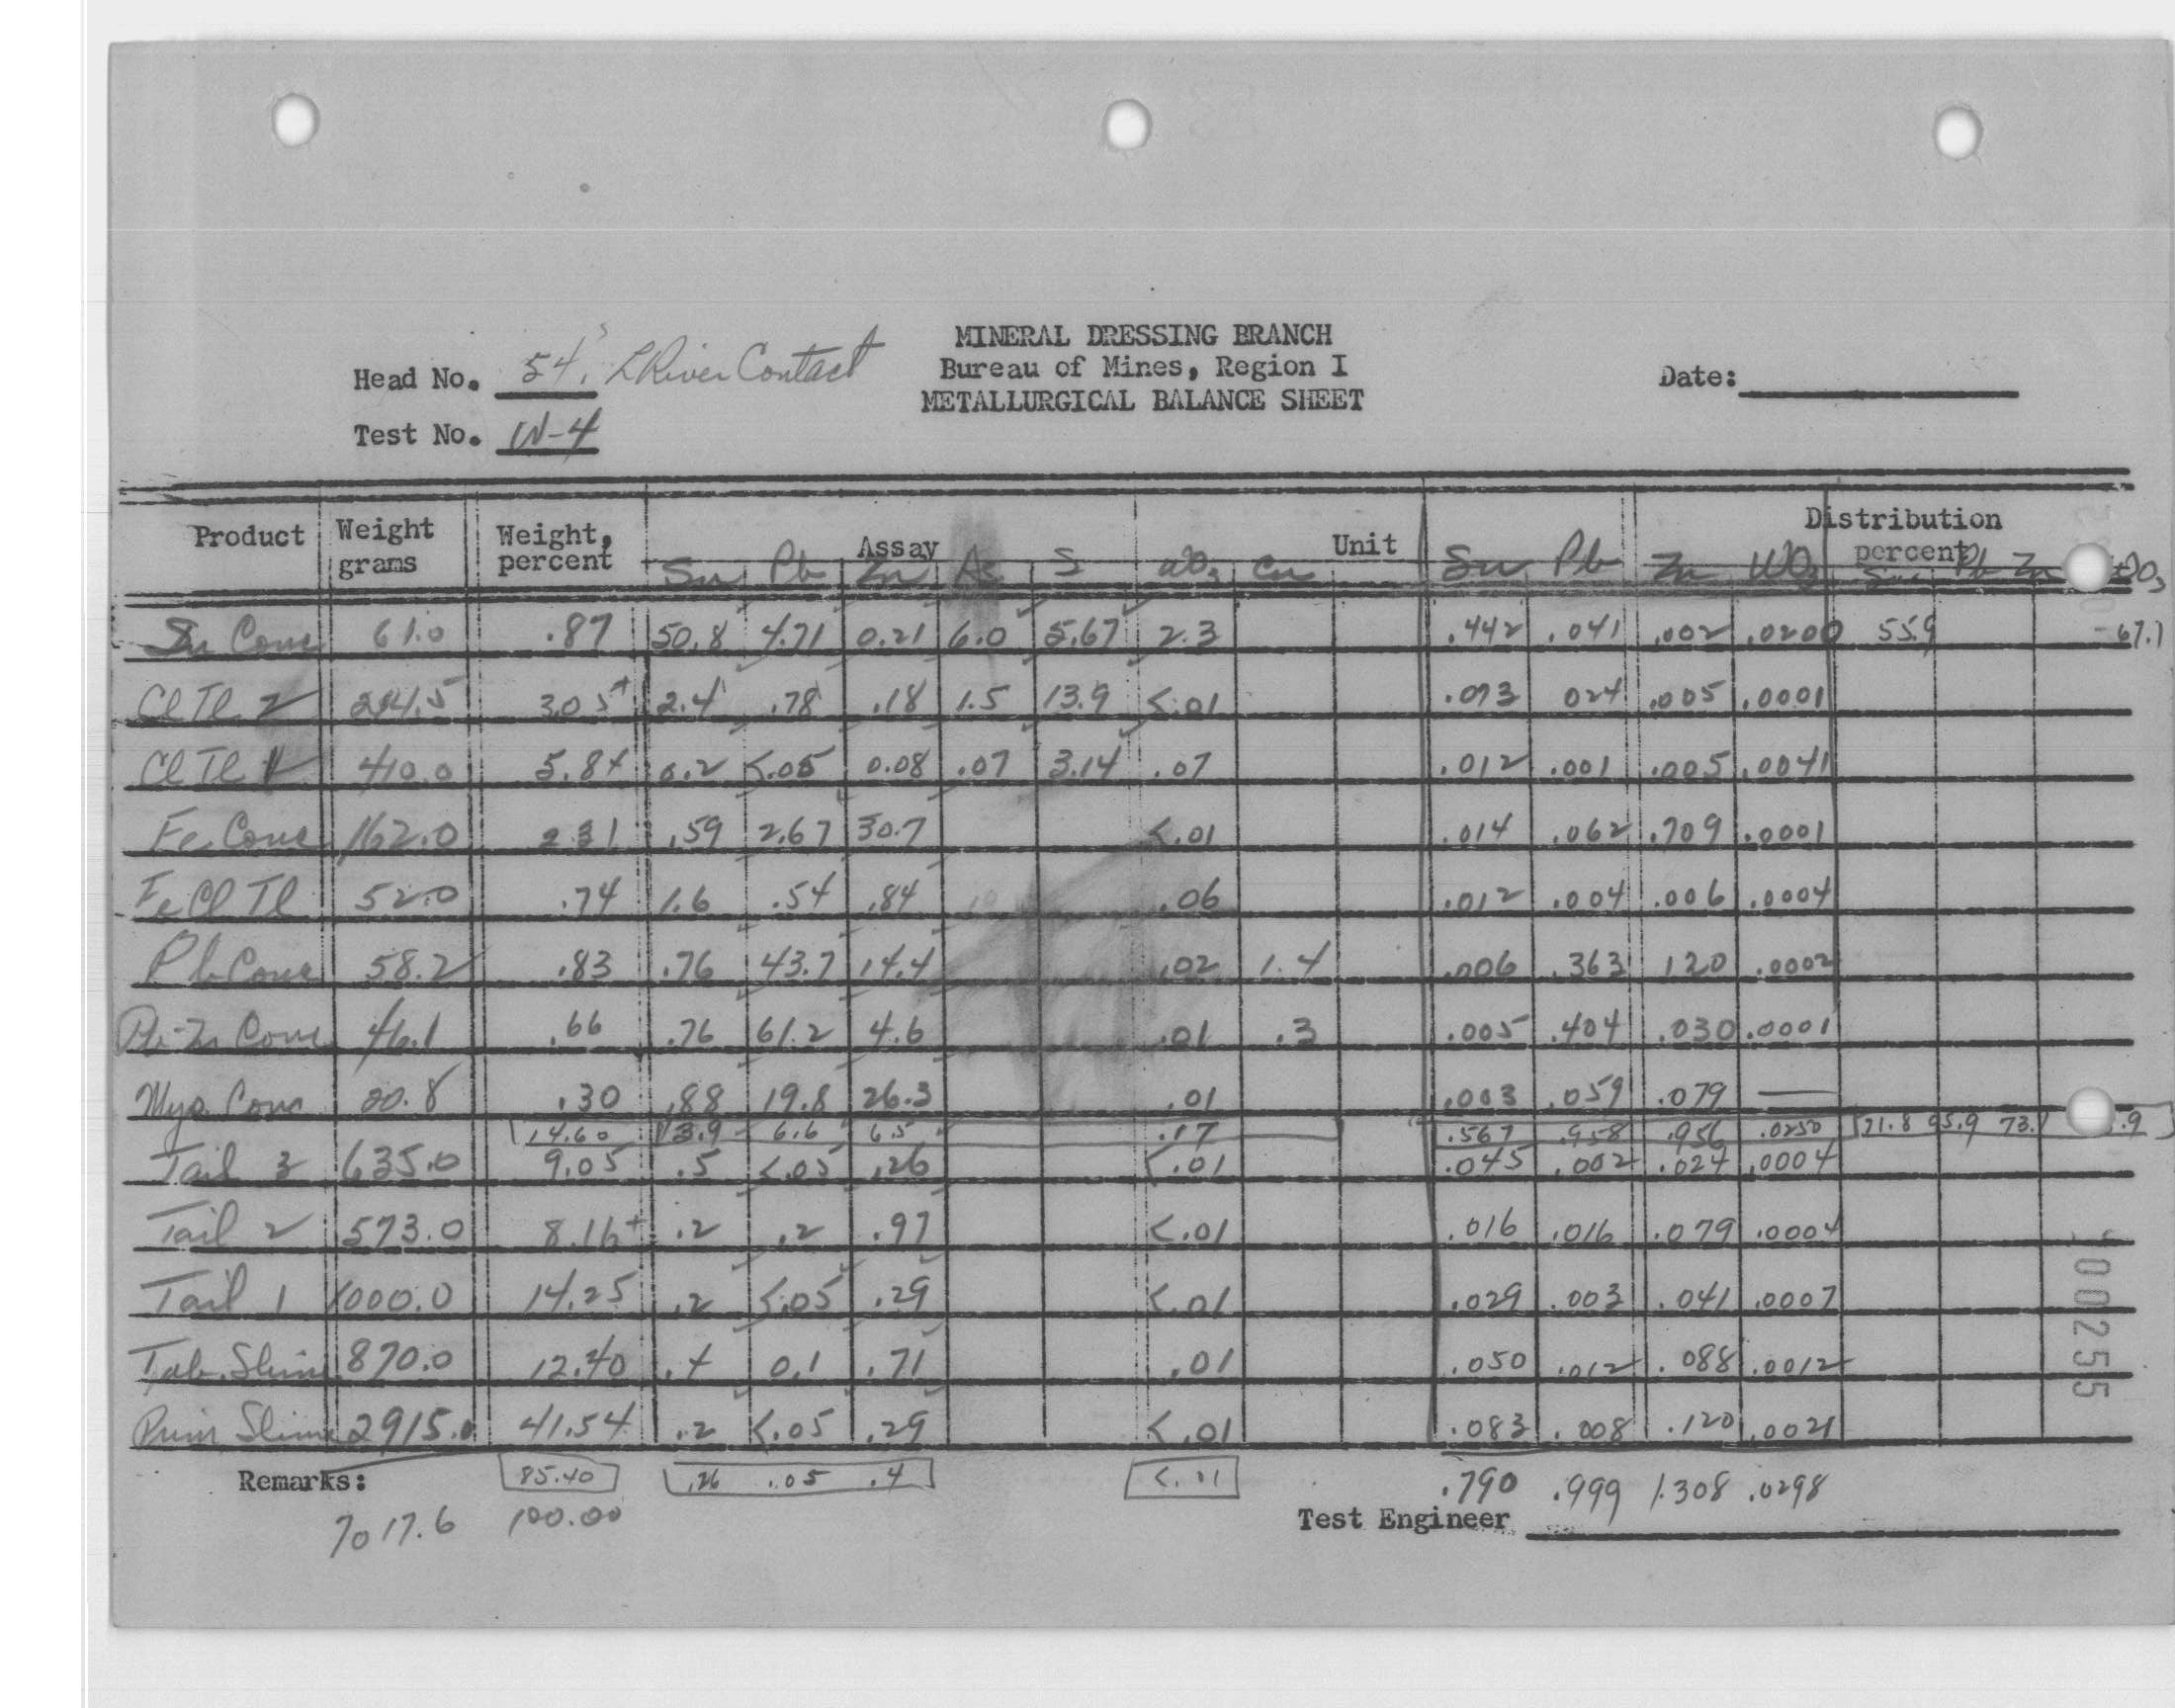 MINERAL DRESSING BRANCH
Head No. 54, L River Contact Bureau of Mines, Region I Date:
METALLURGICAL BALANCE SHEET
Test No. W-4
Product Weight grams Weight, percent Assay Unit Distribution percent
Sn Pb Zn As S WO3 Cu Sn Pb Zn WO3 Sn Pb Zn WO3
Sn Conc 61.0 .87 50.8 4.71 0.21 6.0 5.67 2.3 .442 .041 .002 .0200 55.9 67.1
Cl Tl 2 214.5 3.05+ 2.4 .78 .18 1.5 13.9 <.01 .073 024 .005 .0001
Cl Tl 1 410.0 5.84 0.2 <.05 0.08 .07 3.14 .07 .012 .001 .005 .0041
Fe Conc 162.0 2.31 .59 2.67 30.7 <.01 .014 .062 .709 .0001
Fe Cl Tl 52.0 .74 1.6 .54 .84 .06 .012 .004 .006 .0004
Pb Conc 58.2 .83 .76 43.7 14.4 .02 1.4 .006 .363 120 .0002
Pb-Zn Conc 46.1 .66 .76 61.2 4.6 .01 .3 .005 .404 .030 .0001
Conc 20.8 .30 .88 19.8 26.3 .01 .003 .059 .079 —
14.60 3.9 6.6 6.5 .17 .567 .958 .956 .0250 71.8 95.9 73. .9
Tail 3 635.0 9.05 .5 <.05 .26 <.01 .045 .002 .024 .0004
Tail 2 573.0 8.16+ .2 .2 .97 <.01 .016 .016 .079 .0004
Tail 1 1000.0 14.25 .2 <.05 .29 <.01 .029 .003 .041 .0007
Tab. Slime 870.0 12.40 .4 0.1 .71 .01 .050 .012 .088 .0012
Prim Slime 2915.0 41.54 .2 <.05 .29 <.01 .083 .008 .120 .0021
Remarks: 85.40 .26 .05 .4 <.01 .790 .999 1.308 .0298
7017.6 100.00 Test Engineer
00255